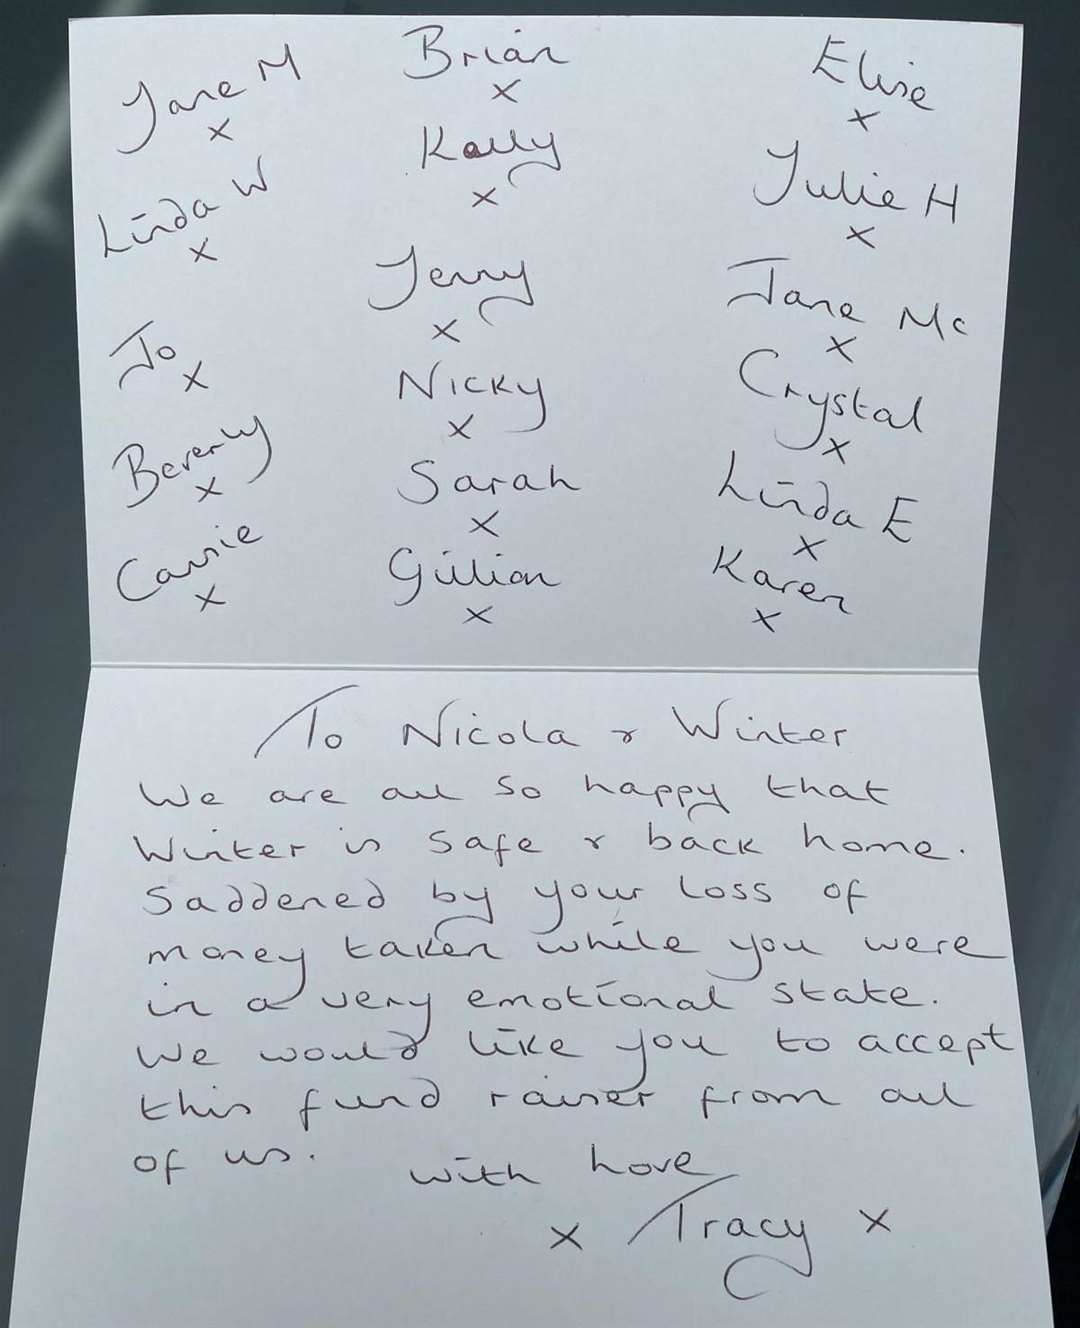 Jane M
x
Linda W
x
Jo
x
Beverly
x
x
Brian
x
x
Jenny
x
Nicky
x
Sarah
x
Gillian
x
Elise
x
Julie H
x
Jane Mc
x
Crystal
x
Linda E
x
Karen
x
To Nicola & Winter
We are all so happy that
Winter is safe & back home.
Saddened by your loss of
money taken while you were
in a very emotional state.
We would like you to accept
this fund raiser from all
of us.
with love
x Tracy x